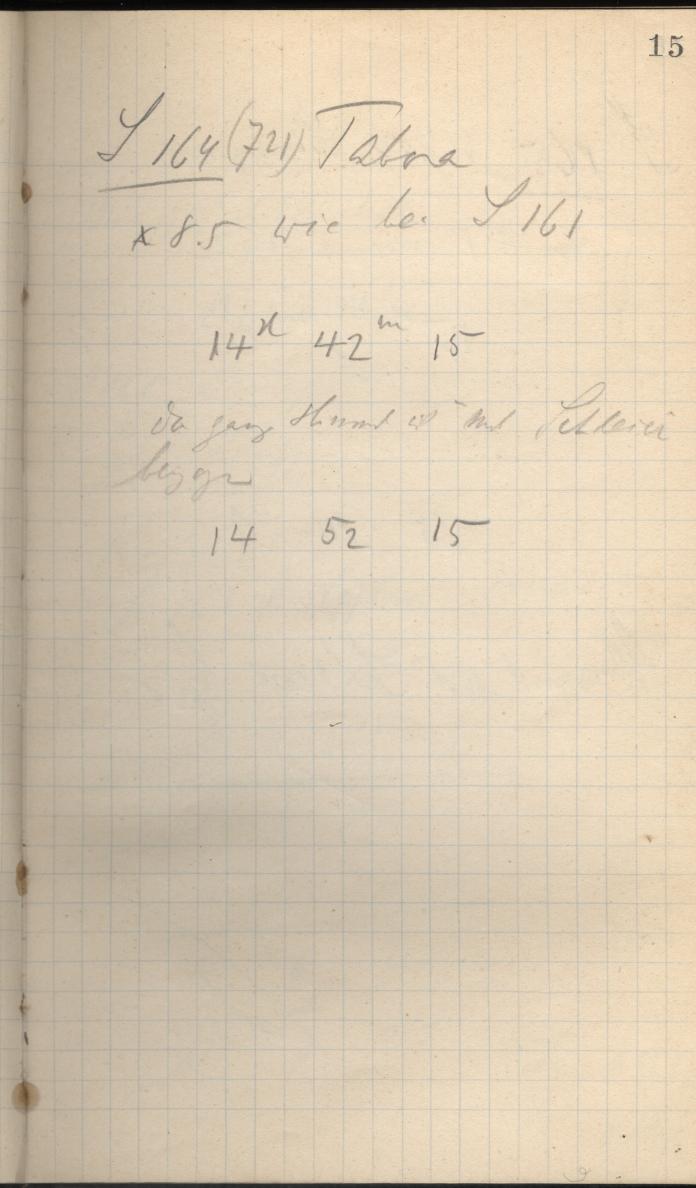 15
S 164 (721) Tabora
* 8.5 wie bei S 161
14ʰ 42ᵐ 15
der ganze Himmel ist mit Schleier
bezogen
14 52 15